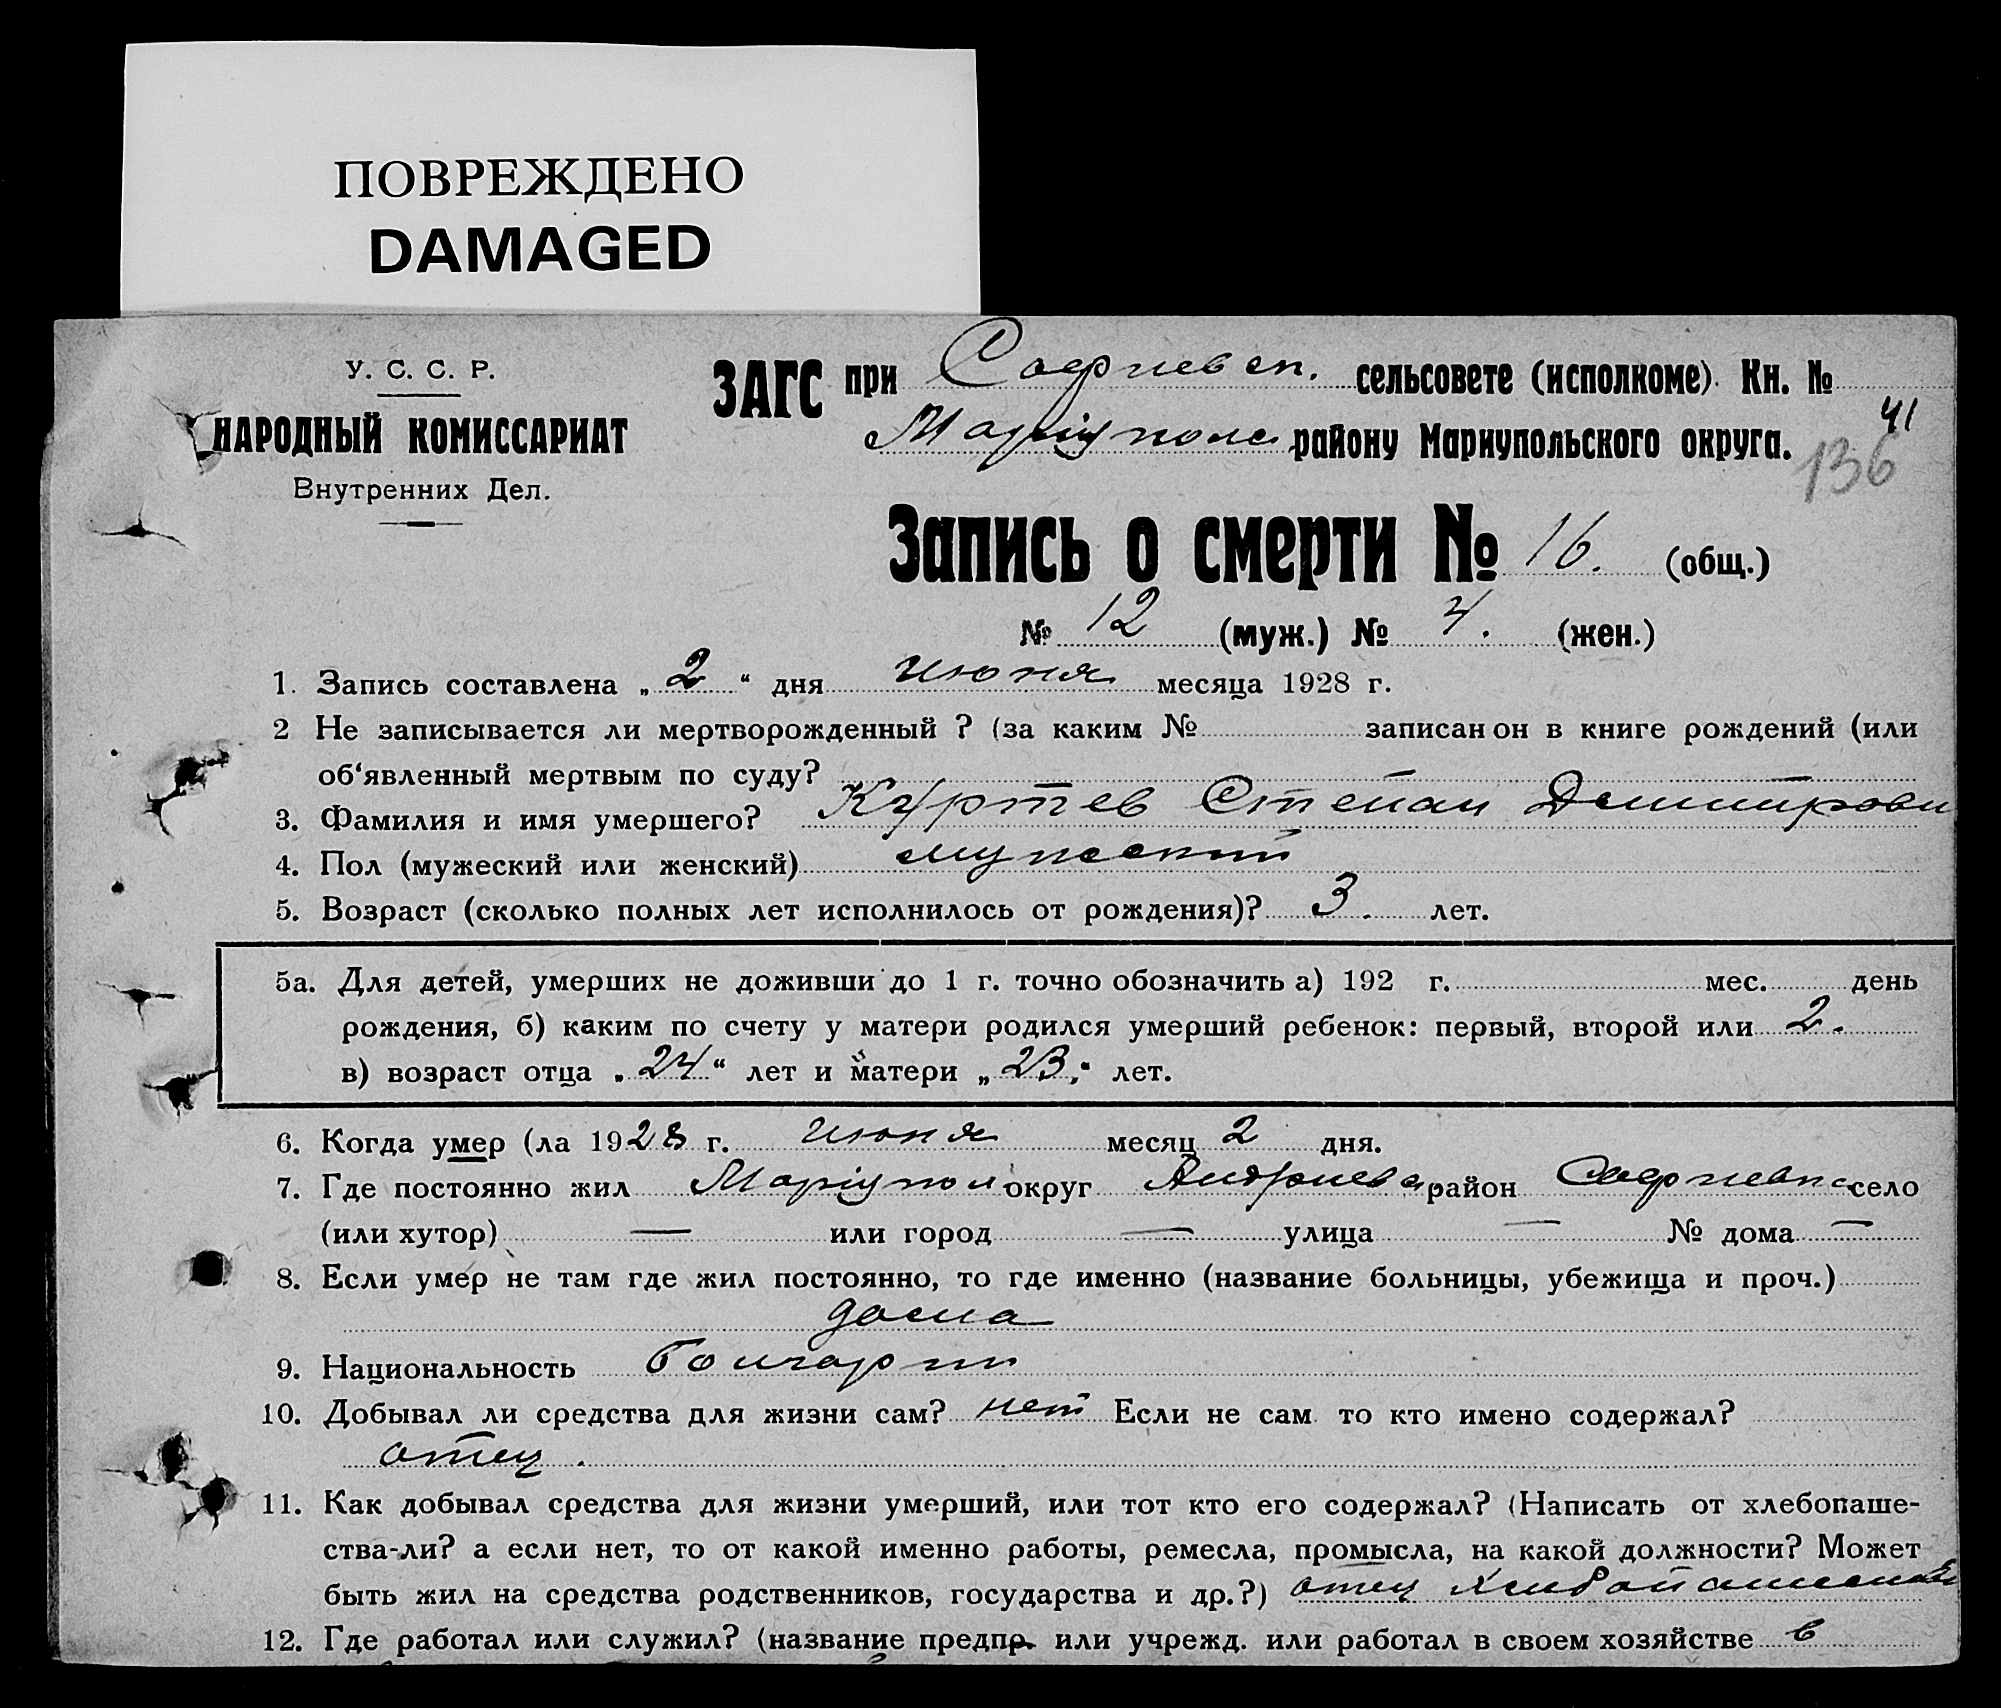 ПОВРЕЖДЕНО
DAMAGED
У. С. С. Р.
НАРОДНЫЙ КОМИССАРИАТ
Внутренних Дел.
ЗАГС при Софиевск. сельсовете (исполкоме). Кн. №
41
Мариуполс району Мариупольского округа.
136
Запись о смерти № 16. (общ.)
№ 12 (муж.) № 4. (жен.)
1. Запись составлена „ 2 “ дня июня месяца 1928 г.
2 Не записывается ли мертворожденный ? (за каким № записан он в книге рождений (или
об‘явленный мертвым по суду?
3. Фамилия и имя умершего? Куртев Степан Дмитрови
4. Пол (мужеский или женский) мужеский
5. Возраст (сколько полных лет исполнилось от рождения)? 3. лет.
5а. Для детей, умерших не доживши до 1 г. точно обозначить а) 192 г. мес. день
рождения, б) каким по счету у матери родился умерший ребенок: первый, второй или 2.
в) возраст отца „ 24 “ лет и матери „ 23. “ лет.
6. Когда умер (ла 1928 г. июня месяц 2 дня.
7. Где постоянно жил Мариупол округ Андриевс район Софиевка село
(или хутор) — или город — улица — № дома —
8. Если умер не там где жил постоянно, то где именно (название больницы, убежища и проч.)
дома
9. Национальность
10. Добывал ли средства для жизни сам? нет Если не сам то кто имено содержал?
отец.
11. Как добывал средства для жизни умерший, или тот кто его содержал? (Написать от хлебопаше-
ства-ли? а если нет, то от какой именно работы, ремесла, промысла, на какой должности? Может
быть жил на средства родственников, государства и др.?) отец
12. Где работал или служил? (название предпр. или учрежд. или работал в своем хозяйстве в